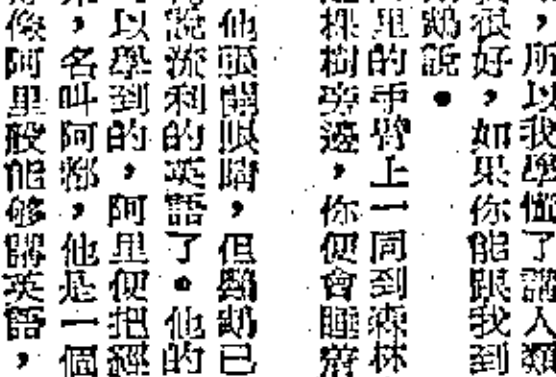 ，所以我學懂了講人類
很好，如果你能跟我到
鵡說。
里的手臂上一同到森林
棵樹旁邊，你便會睡着
他開眼睛，但鸚鵡已
說流利的英語了。他的
以學到的，阿里便把經
，名叫阿，他是一個
像阿里般能够講英語，